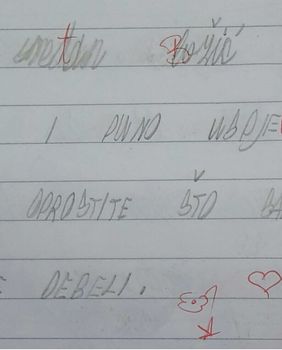 sretan Božić
I PUNO USPJE
OPROSTITE ŠTO SA
E DEBELI.